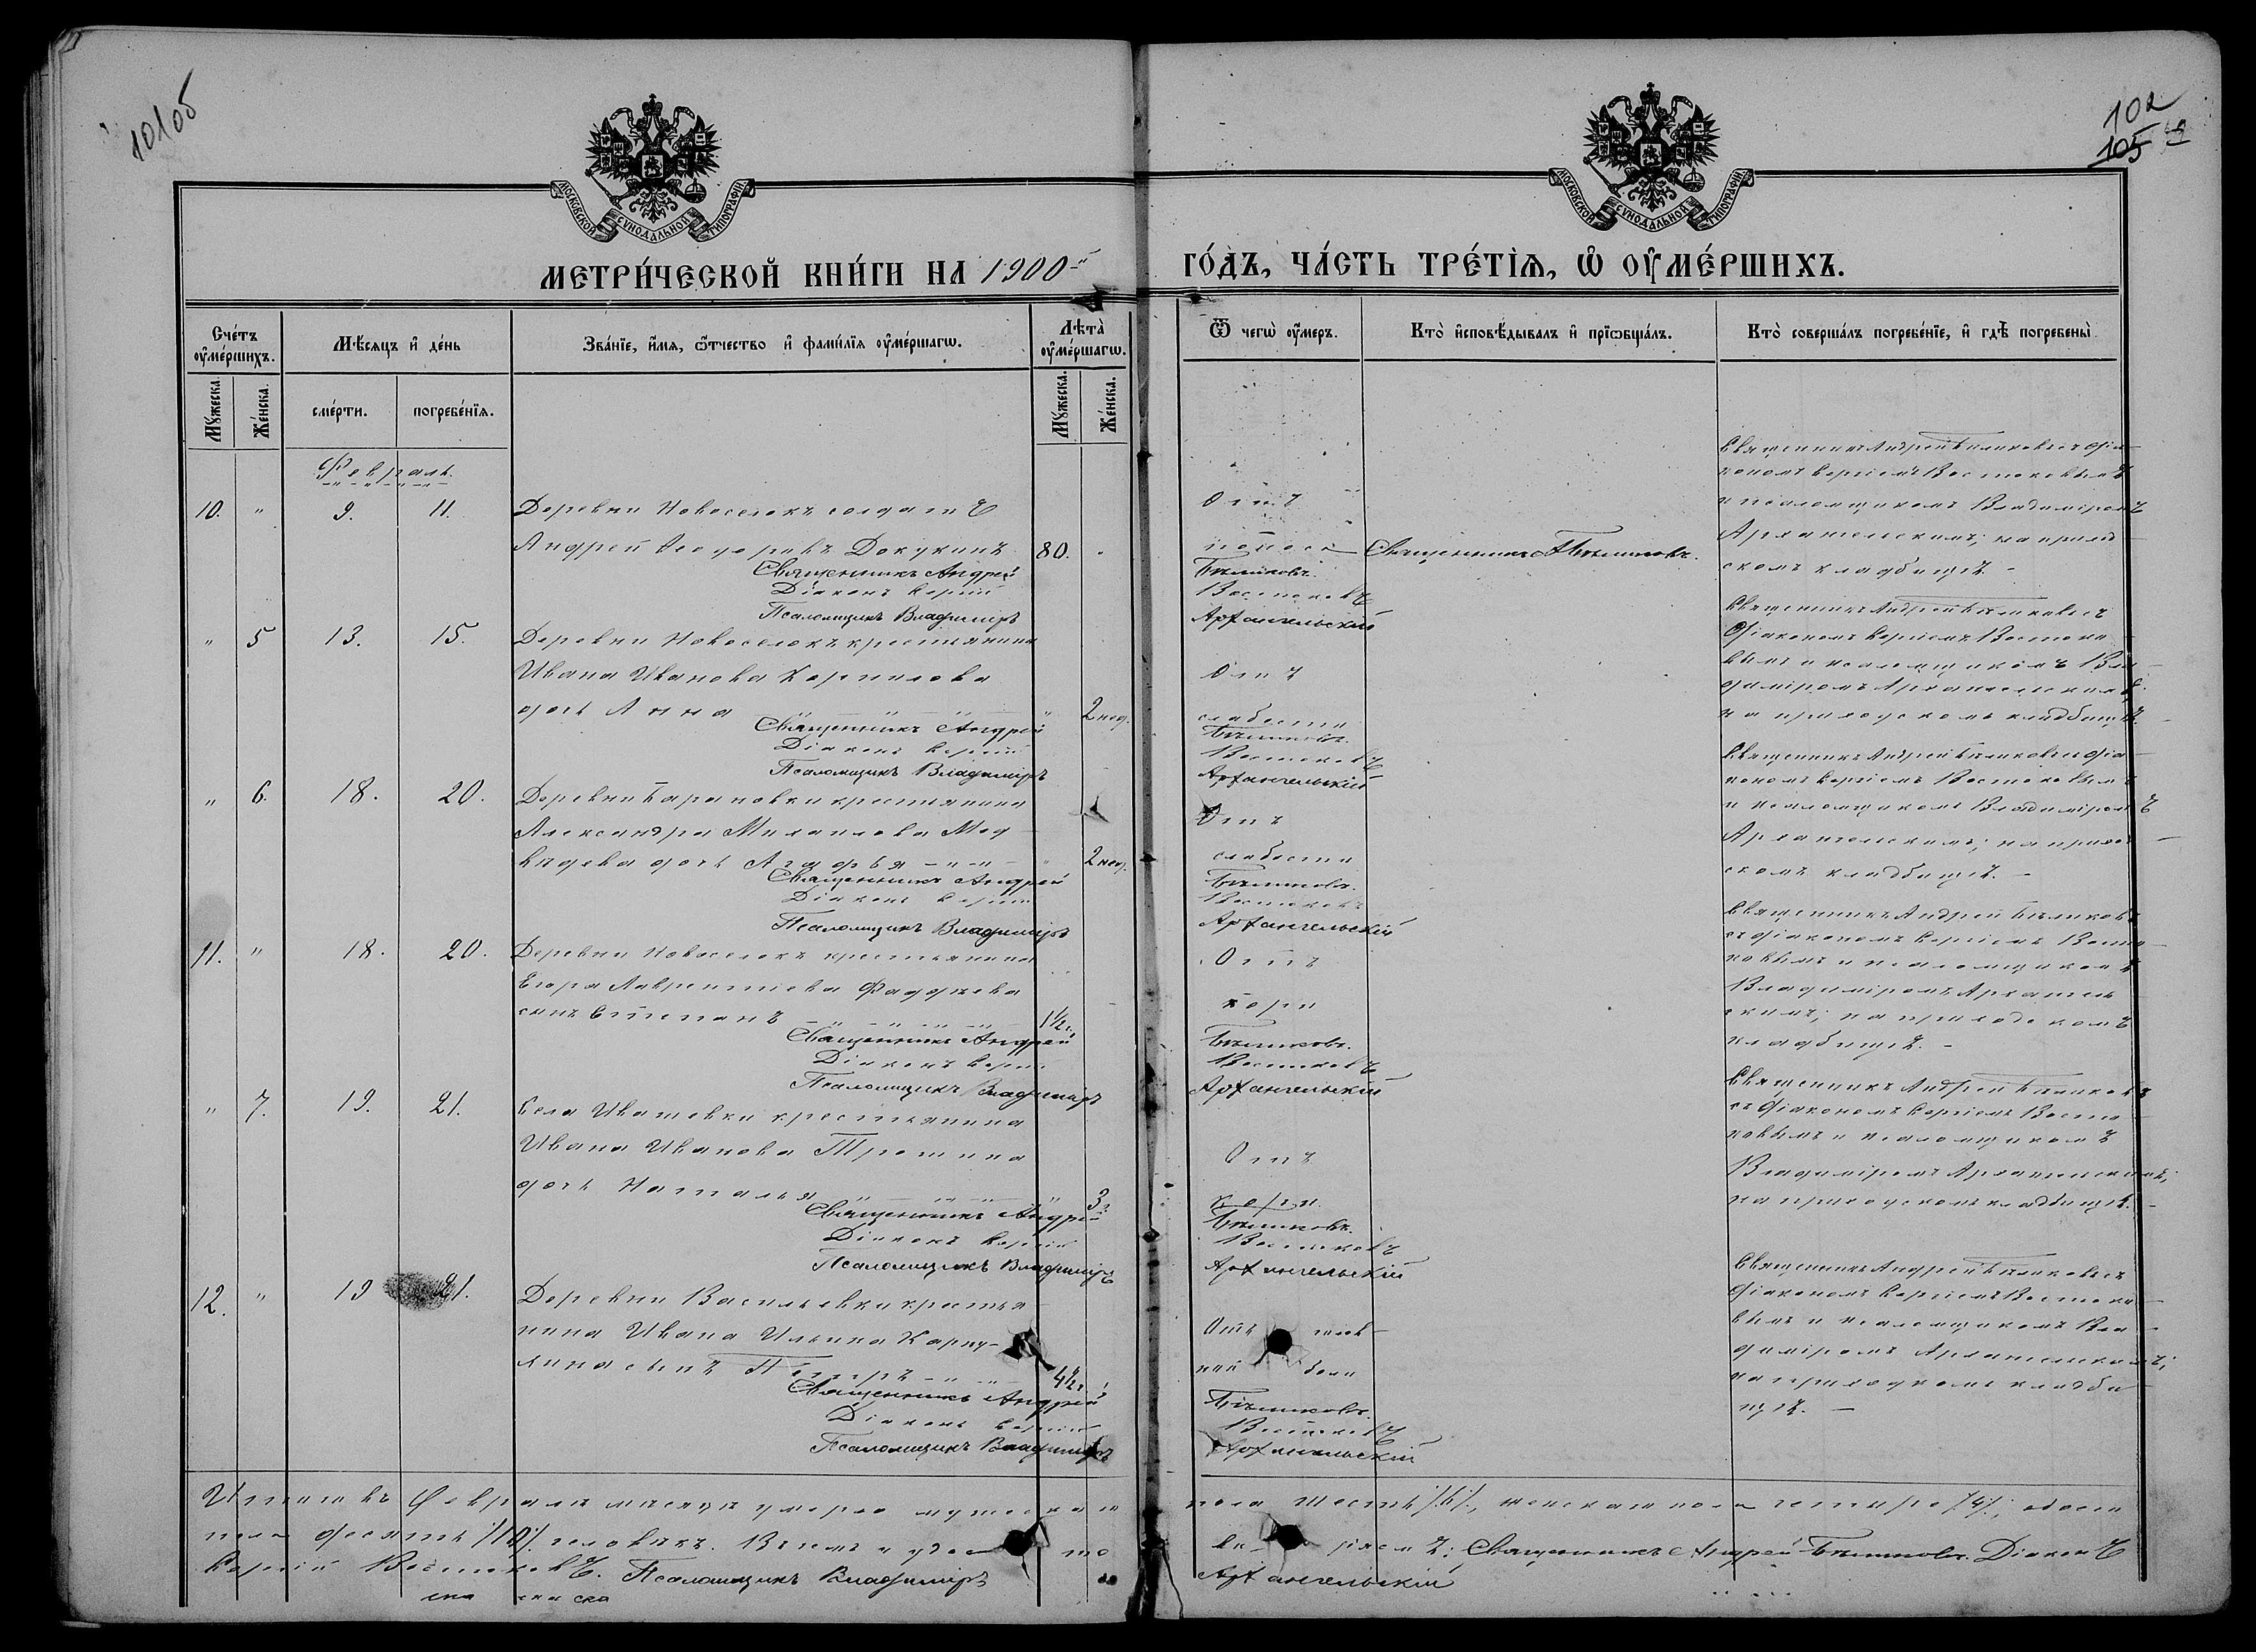 101об
102
105
МОСКОВСКОЙ СѴНОДАЛЬНОЙ ТИПОГРАФІИ
МОСКОВСКОЙ СѴНОДАЛЬНОЙ ТИПОГРАФІИ
МЕТРИ́ЧЕСКОЙ КНИ́ГИ НА 1900-й
ГО́ДЪ, ЧА́СТЬ ТРЕ́ТІѦ, Ѡ҆ ОУ҆МЕ́РШИХЪ.
Сче́тъ оу҆ме́ршихъ.
Мѣ́сяцъ и҆ де́нь
Зва́нїе, и҆́мя, ѻ҆́тчество и҆ фами́лїя оу҆ме́ршагѡ.
Лѣта̀ оу҆ме́ршагѡ.
Ѿ чегѡ̀ оу҆́меръ.
Кто̀ и҆сповѣ́дывалъ и҆ прїѡбща́лъ.
Кто̀ соверша́лъ погребе́нїе, и҆ гдѣ̀ погребены̀.
Мꙋ́жеска.
Же́нска.
сме́рти.
погребе́нїя.
Мꙋ́жеска.
Же́нска.
Февраль.
10. " 9. 11. Деревни Новоселокъ солдатъ
Андрей Ѳеодоровъ Докукинъ 80. "
Священникъ Андрей
Діаконъ Сергій
Псаломщикъ Владиміръ
Отъ
поноса
Священникъ А Бѣликовъ.
Бѣликовъ.
Востоковъ
Архангельскій
Священникъ Андрей Бѣликовъ съ діа-
кономъ Сергіемъ Востоковымъ
и псаломщикомъ Владиміромъ
Архангельскимъ; на приход-
скомъ кладбищѣ. -
" 5 13. 15. Деревни Новоселокъ крестьянина
Ивана Иванова Корнилова
дочь Анна " 2 нед.
Священникъ Андрей
Діаконъ Сергій
Псаломщикъ Владиміръ
Отъ
слабости
Бѣликовъ.
Востоковъ
Архангельскій
Священникъ Андрей Бѣликовъ съ
діакономъ Сергіемъ Востоко-
вымъ и псаломщикомъ Вла-
диміромъ Архангельскимъ;
на приходскомъ кладбищѣ. -
" 6. 18. 20. Деревни Барановки крестьянина
Александра Михаилова Мед-
вѣдева дочь Агафья " 2 нед.
Священникъ Андрей
Діаконъ Сергій
Псаломщикъ Владиміръ
Отъ
слабости
Бѣликовъ.
Востоковъ
Архангельскій
Священникъ Андрей Бѣликовъ съ діа-
кономъ Сергіемъ Востоковымъ
и псаломщикомъ Владиміромъ
Архангельскимъ; на приход-
скомъ кладбищѣ. -
11. " 18. 20. Деревни Новоселокъ крестьянина
Егора Лаврентіева Фаддѣева
сынъ Степанъ 1½ г.
Священникъ Андрей
Діаконъ Сергій
Псаломщикъ Владиміръ
Отъ
кори
Бѣликовъ.
Востоковъ
Архангельскій
Священникъ Андрей Бѣликовъ
съ діакономъ Сергіемъ Восто-
ковымъ и псаломщикомъ
Владиміромъ Архангель-
скимъ; на приходскомъ
кладбищѣ. -
" 7. 19. 21. Села Ивашевки крестьянина
Ивана Иванова Трошина
дочь Наталья " 3.
Священникъ Андрей
Діаконъ Сергій
Псаломщикъ Владиміръ
Отъ
кори.
Бѣликовъ.
Востоковъ
Архангельскій
Священникъ Андрей Бѣликовъ
съ діакономъ Сергіемъ Восто-
ковымъ и псаломщикомъ
Владиміромъ Архангельскимъ;
на приходскомъ кладбищѣ. -
12. " 19 21. Деревни Васильевки крестья-
нина Ивана Ильина
сынъ Петръ 4½ г.
Священникъ Андрей
Діаконъ Сергій
Псаломщикъ Владиміръ
Отъ голов-
ной боли
Бѣликовъ.
Востоковъ
Архангельскій
Священникъ Андрей Бѣликовъ съ
діакономъ Сергіемъ Востоко-
вымъ и псаломщикомъ Вла-
диміромъ Архангельскимъ;
на приходскомъ кладби-
щѣ. -
Итого въ Февралѣ мѣсяцѣ умерло мужеска го пола шесть /6/, женскаго пола четыре /4/; обоего
пола десять /10/ человѣкъ. Въ чемъ и удосто вѣ ряемъ: Священникъ Андрей Бѣликовъ. Діаконъ
Сергій Востоковъ. Псаломщикъ Владиміръ Архангельскій